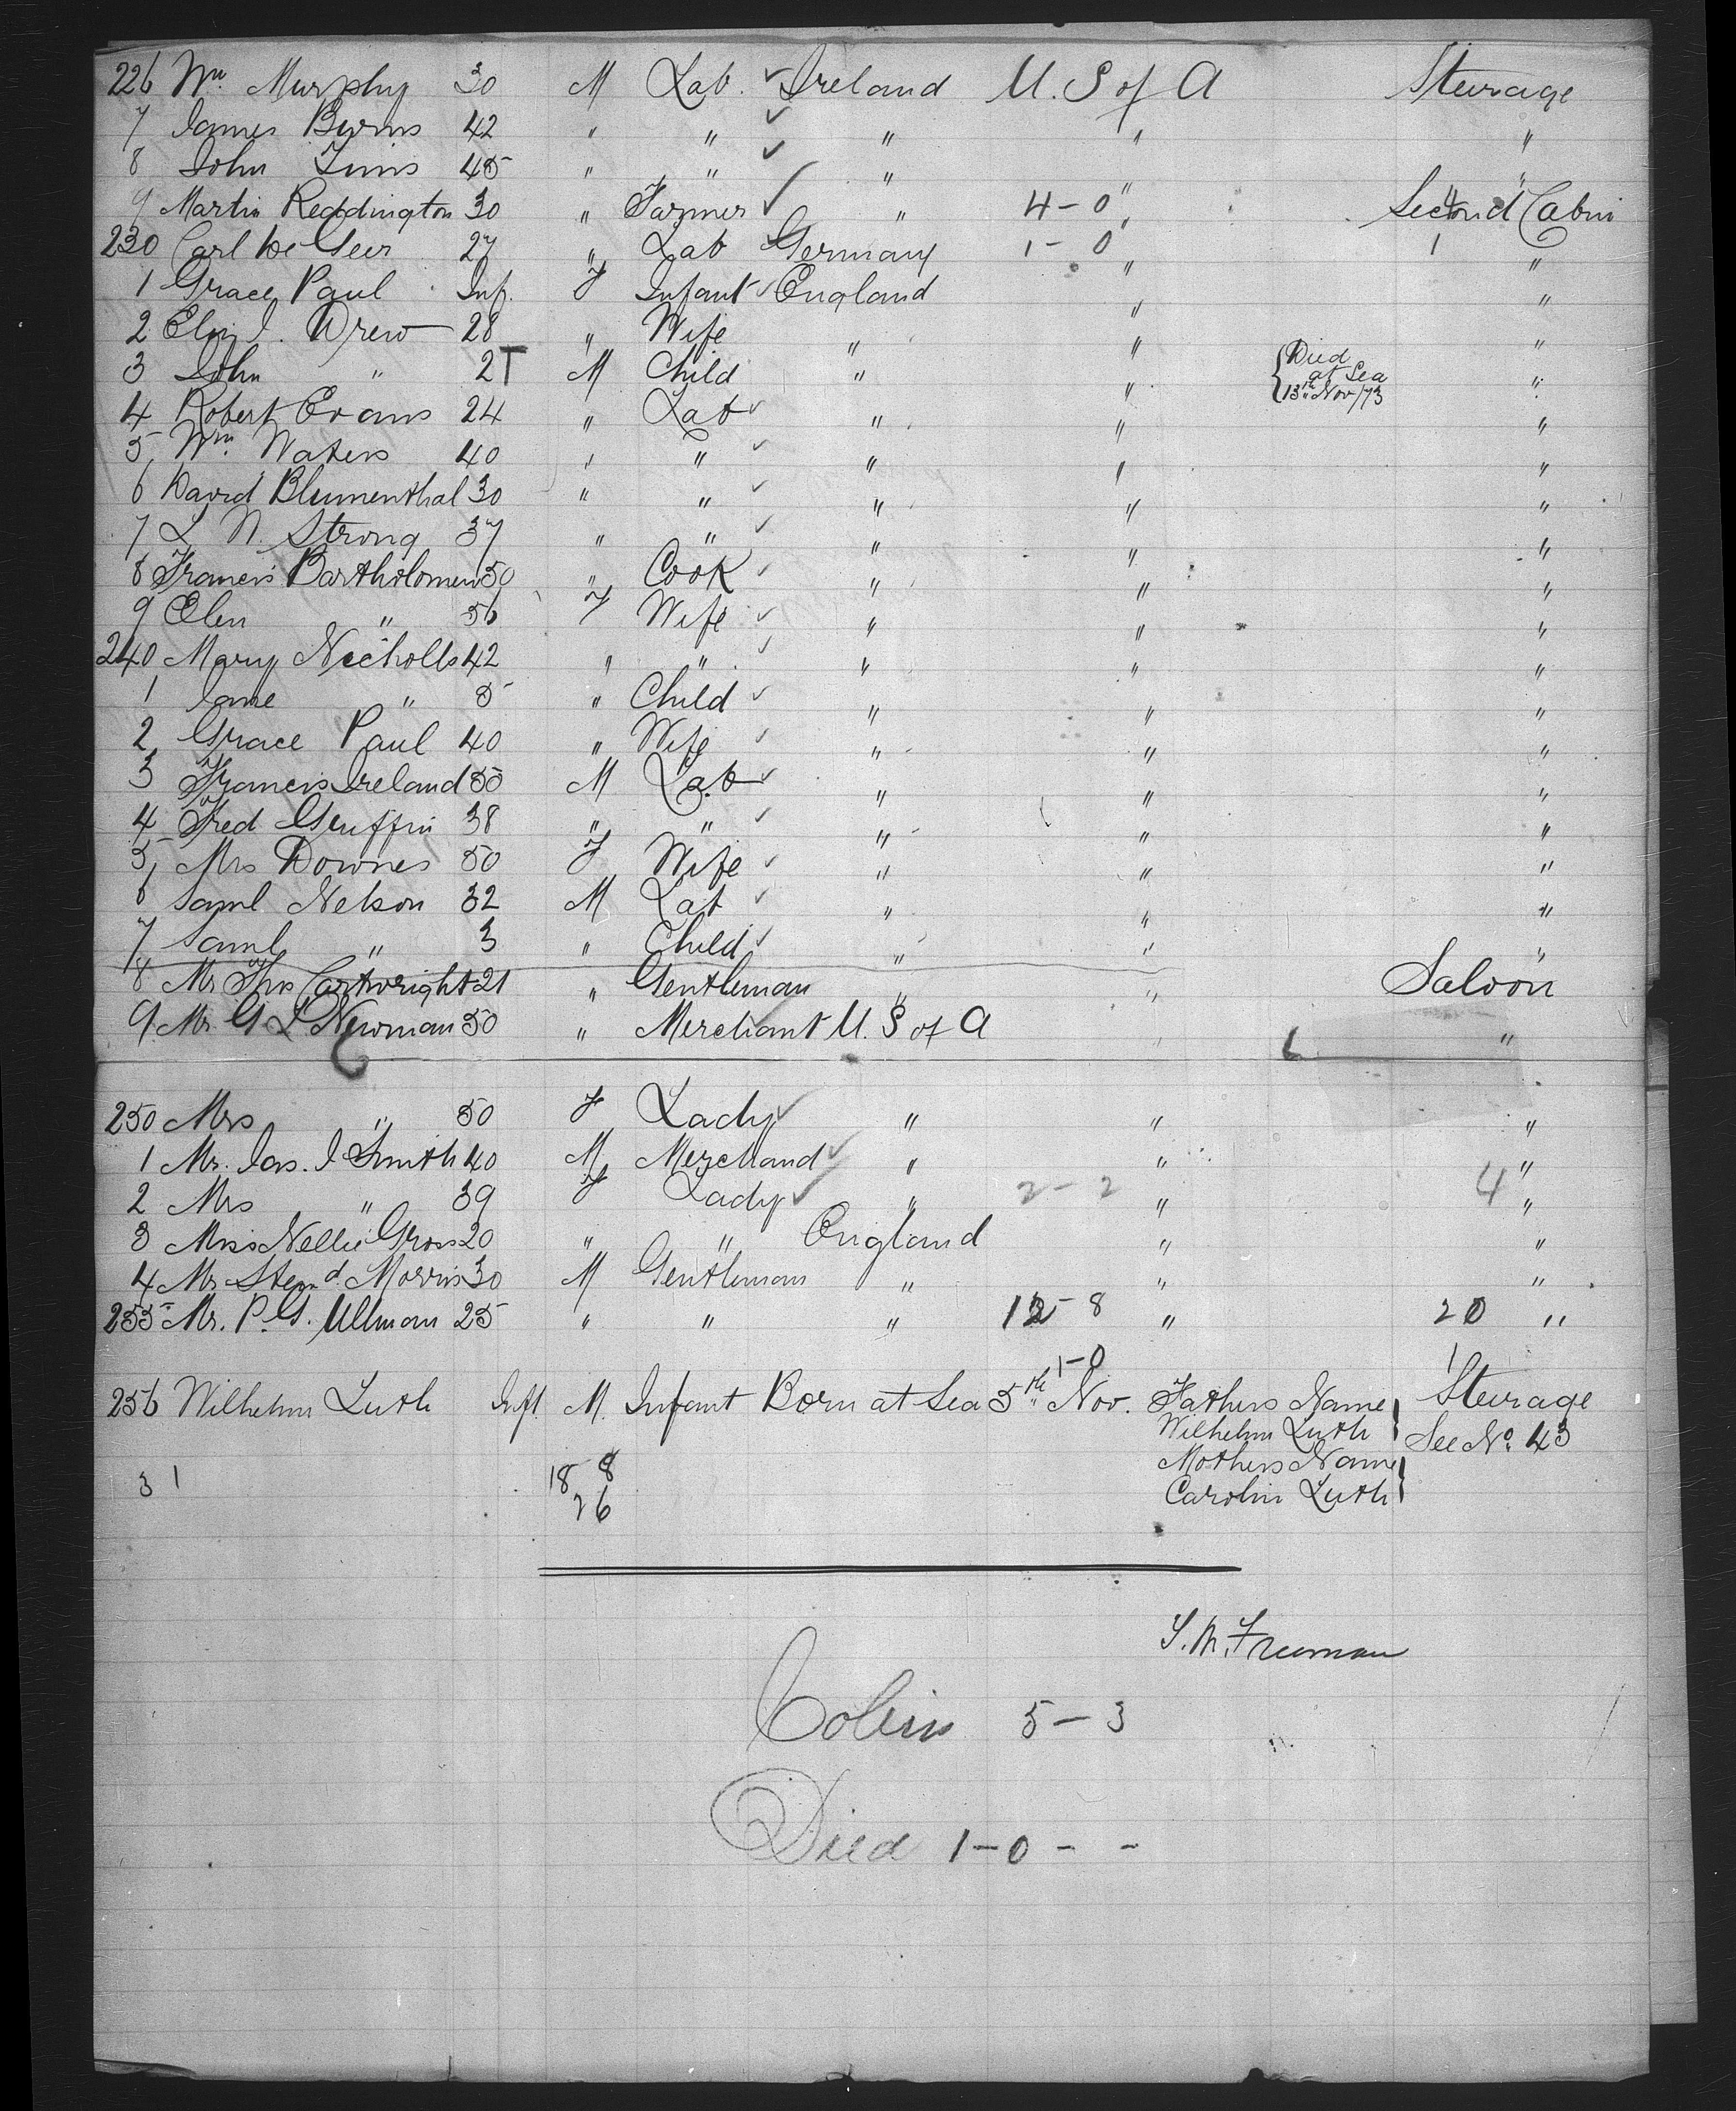 226 Wm. Murphy 30 M Lab. ✓ Ireland U. S of A Steurage
7 James Burns 42 " " ✓ " " "
8 John Tims 45 " " ✓ " " "
9 Martin Reddington 30 " Farmer ✓ " 4-0 " 4 Second Cabin
230 Carl De Geer 27 " Lab ✓ Germany 1-0 " 1 "
1 Grace Paul Inf. F Infant ✓ England " "
2 Eliz J. Drew 28 " Wife " " "
3 John " 2 T M Child " " { Died at Sea 13th Nov/73 "
4 Robert Evans 24 " Lab ✓ " " "
5 Wm. Waters 40 " " ✓ " " "
6 David Blumenthal 30 " " ✓ " " "
7 L N. Strong 37 " " ✓ " " "
8 Francis Bartholomew 59 " Cook ✓ " " "
9 Elen " 56 F Wife ✓ " " "
240 Mary Nicholls 42 " " ✓ " " "
1 Jane " 5 " Child ✓ " " "
2 Grace Paul 40 " Wife ✓ " " "
3 Francis Ireland 50 M Lab ✓ " " "
4 Fred Gruffin 38 " " ✓ " " "
5 Mrs Downes 50 F Wife ✓ " " "
6 Saml Nelson 32 M Lab ✓ " " "
7 Saml " 3 " Child ✓ " " "
8 Mr Thos Cartwright 21 " Gentleman " " Saloon
9 Mr G L Newman 50 " Merchant U. S of A "
250 Mrs " 50 F Lady ✓ " " "
1 Mr. Jas. J Smith 40 M Merchand ✓ " " "
2 Mrs " 39 F Lady ✓ " 2-2 " 4 "
3 Miss Nellie Gross 20 " " England " "
4 Mr Morris 30 M Gentleman " " "
255 Mr. P. G. Ullman 25 " " " 12-8 " 20 "
1-0 1
256 Wilhelm Luth Inft. M. Infant Born at Sea 5th Nov. Fathers Name Steurage
Wilhelm Luth } See No. 43
Mothers Name
Carolin Luth }
3 1 18 8
26
Freeman
5-3
Died 1-0 - -